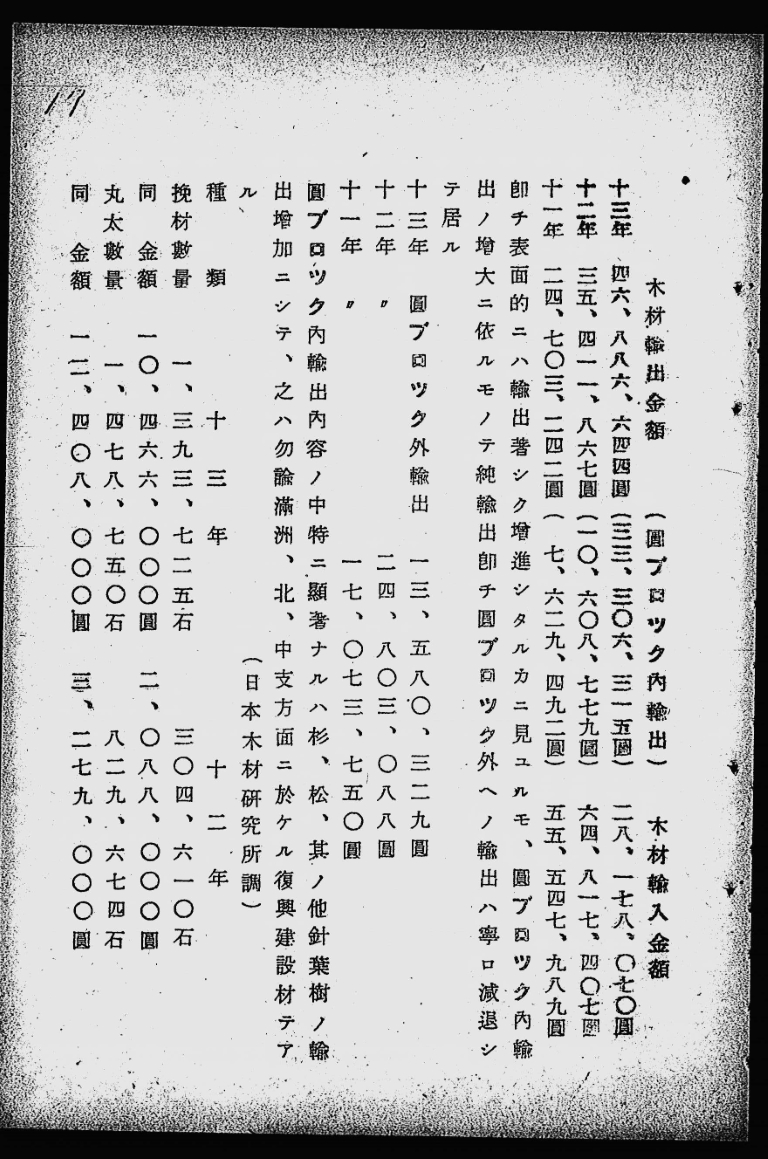 17
木材輸出金額　（圓ブロツク內輸出）　木材輸入金額
十三年　四六、八八六、六四四圓（三三、三〇六、三一五圓）　二八、一七八、〇七〇圓
十二年　三五、四一一、八六七圓（一〇、六〇八、七七九圓）　六四、八一七、四〇七圓
十一年　二四、七〇三、二四二圓（　七、六二九、四九二圓）　五五、五四七、九八九圓
卽チ表面的ニハ輸出著シク增進シタルカニ見ユルモ、圓ブロツク內輸
出ノ增大ニ依ルモノテ純輸出卽チ圓ブロツク外ヘノ輸出ハ寧ロ減退シ
テ居ル
十三年　圓ブロツク外輸出　一三、五八〇、三二九圓
十二年　〃　二四、八〇三、〇八八圓
十一年　〃　一七、〇七三、七五〇圓
圓ブロツク內輸出內容ノ中特ニ顯著ナルハ杉、松、其ノ他針葉樹ノ輸
出增加ニシテ、之ハ勿論滿洲、北、中支方面ニ於ケル復興建設材テア
ル　（日本木材硏究所調）
種類　十三年　十二年
挽材數量　一、三九三、七二五石　三〇四、六一〇石
同　金額　一〇、四六六、〇〇〇圓　二、〇八八、〇〇〇圓
丸太數量　一、四七八、七五〇石　八二九、六七四石
同　金額　一二、四〇八、〇〇〇圓　三、二七九、〇〇〇圓